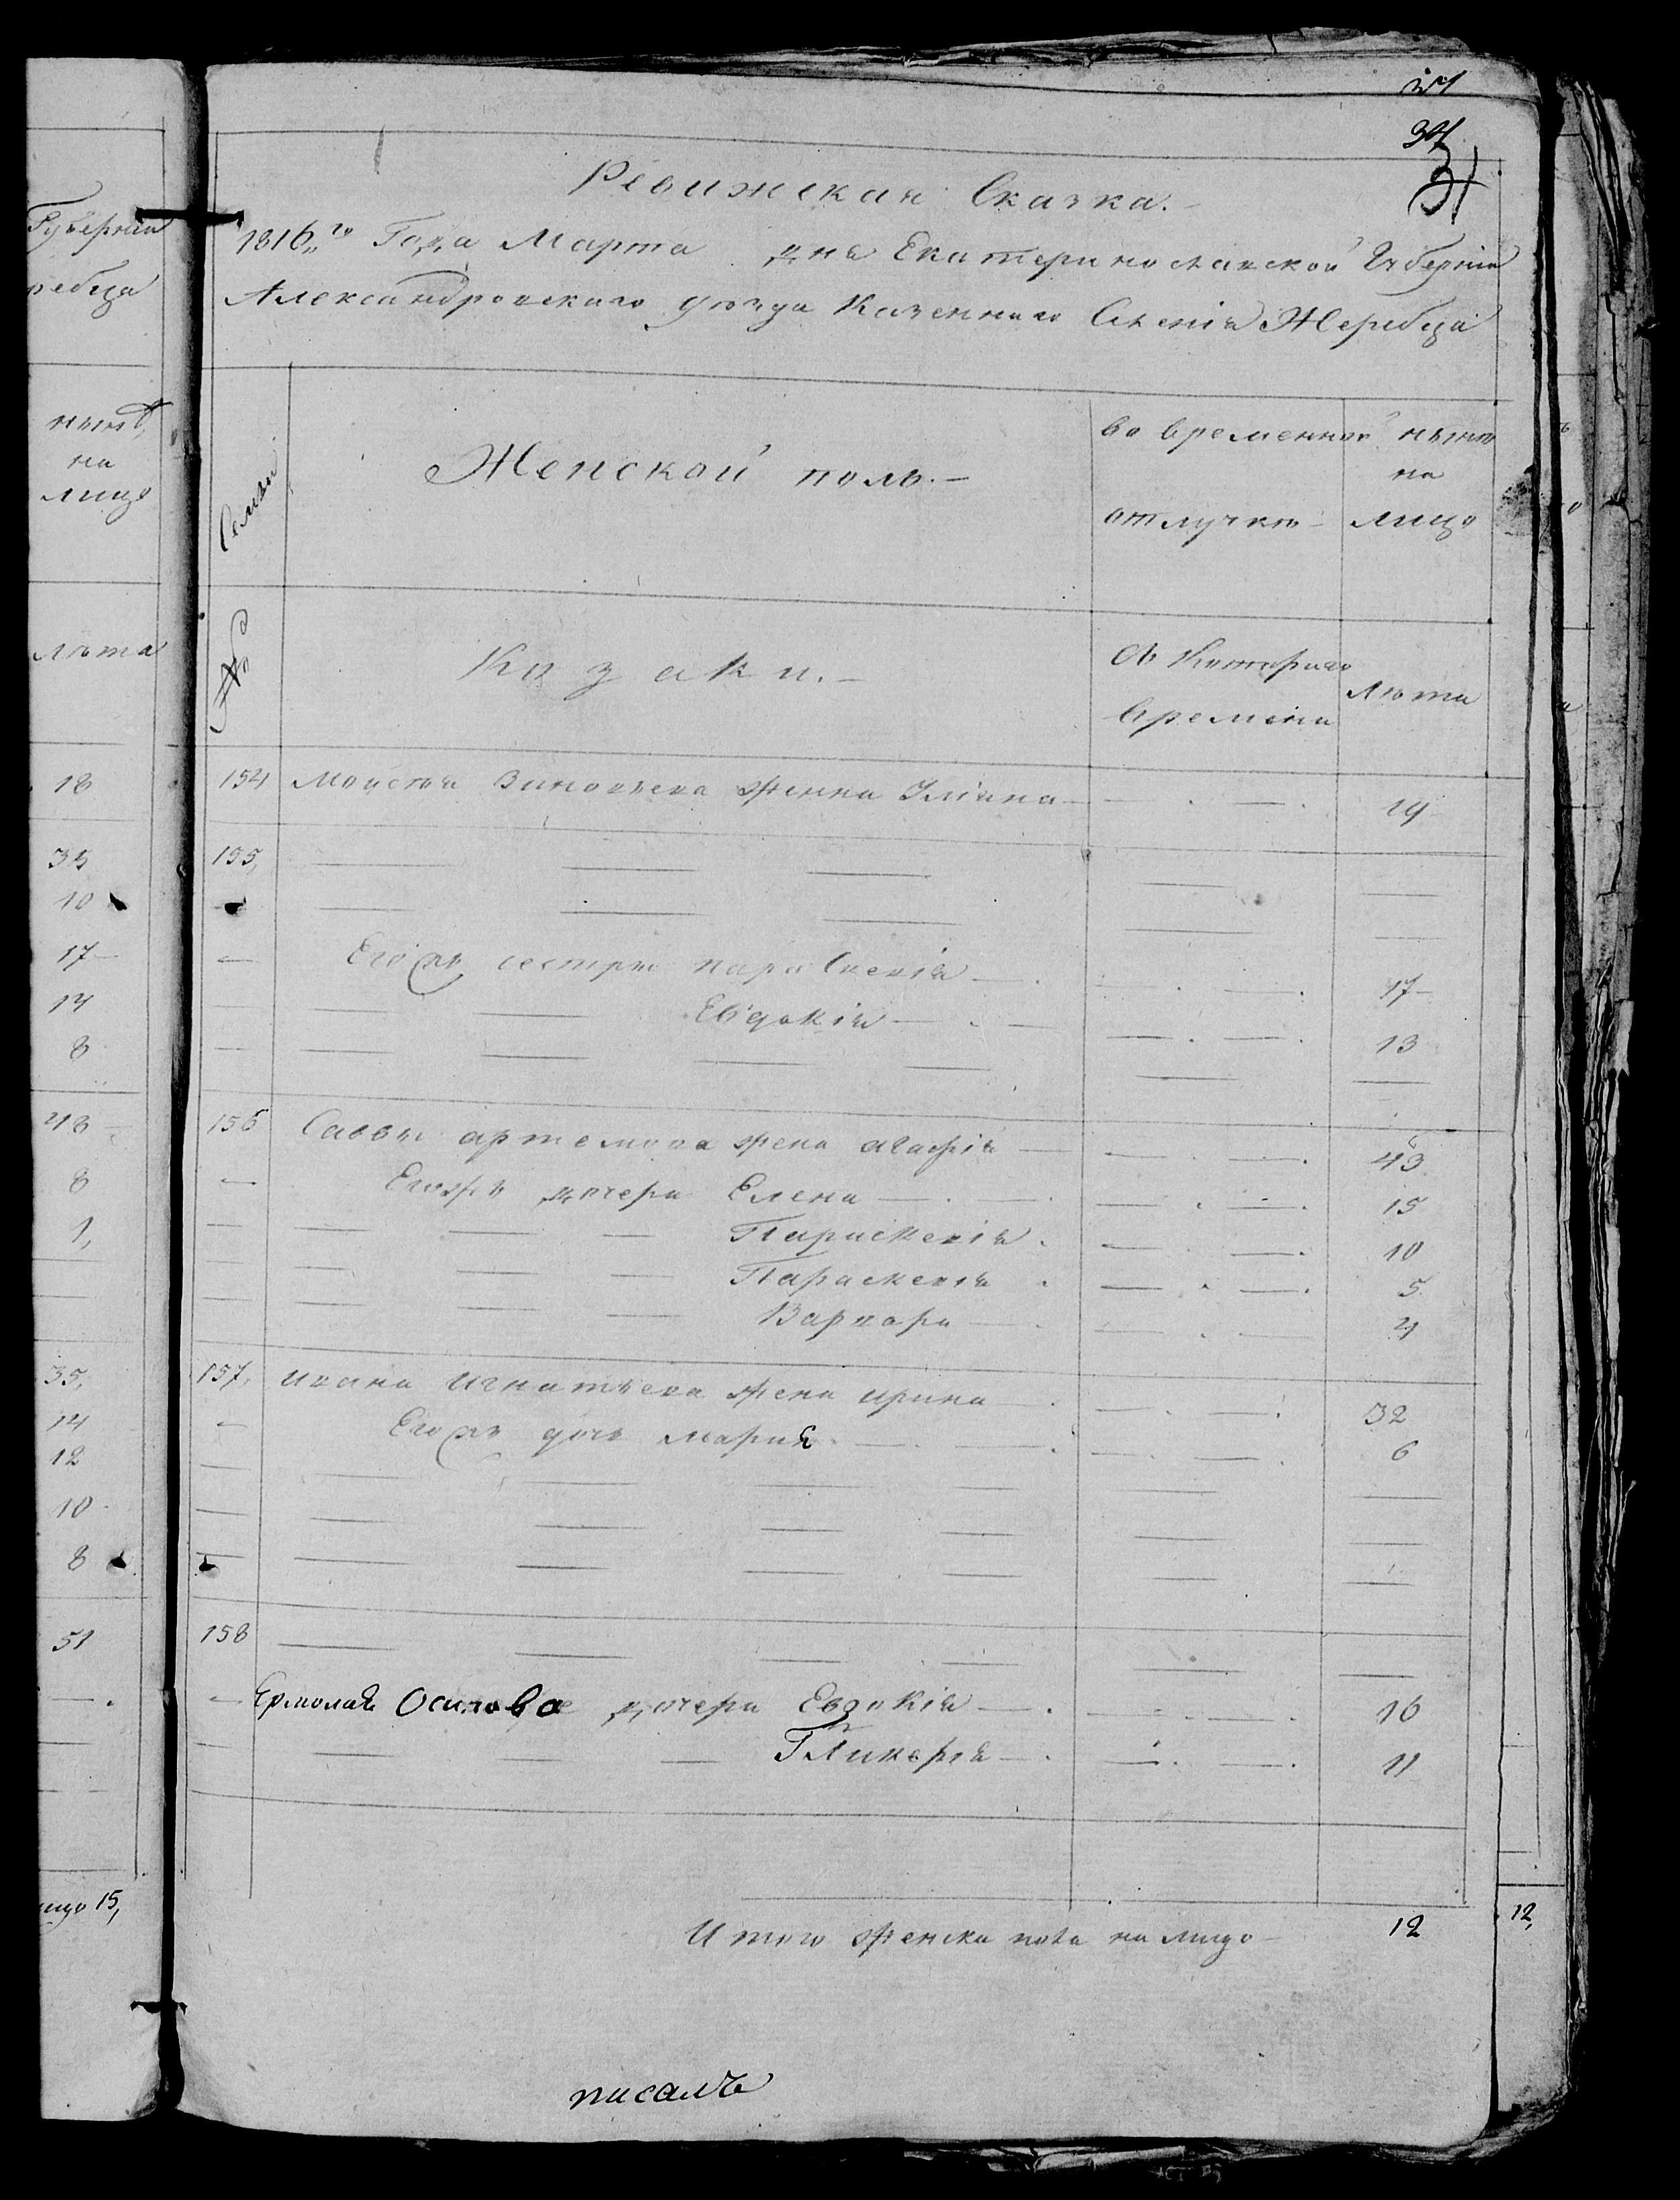 31
Ревижская Сказка.
1816го Года Марта дня Екатеринославской Губерніи
Александровскаго уѣзда Казеннаго Селенія Жеребца
Семьи
Женской полъ.
во временной отлучкѣ
нынѣ на лицо
№
Козаки.
Съ Котораго времени
Лѣта
154 Моисѣя Зиновьева женка Уліяна 19
155,
Егожъ сестры параскевія 17
Евдокія 13
156 Саввы артемова жена агафія 43
Егожъ дочери Елена 15
Параскевія 10
Параскевія 5
Варвара 4
157, ивана игнатьева жена ирина 32
Егожъ дочь мария 6
158
Ермолая Осипова дочери Евдокія 16
Гликерія 11
Итого женска пола на лицо 12
писалъ
Губерніи
ребца
нынѣ
на
лицо
лѣта
18
35
10
17
14
8
48
8
1,
35,
14
12
10
8
51
лицо 15,
12,